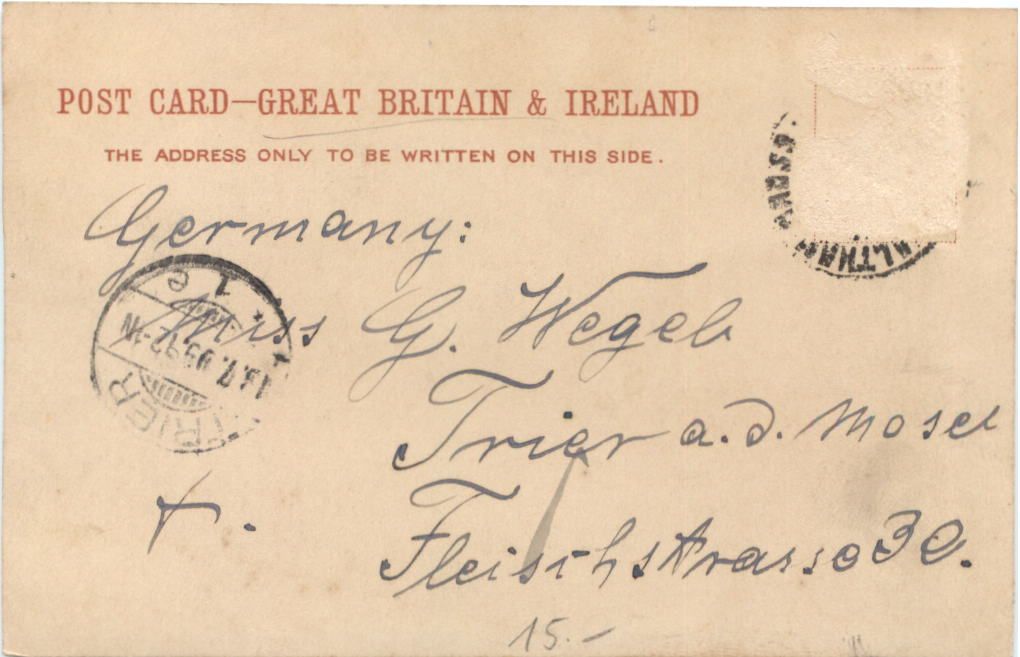 POST CARD—GREAT BRITAIN & IRELAND
THE ADDRESS ONLY TO BE WRITTEN ON THIS SIDE.
Germany:
Miss G. Wegeb
Trier a.d. Mosel
Fleischstrasse 30.
TRIER
1 e
15.-